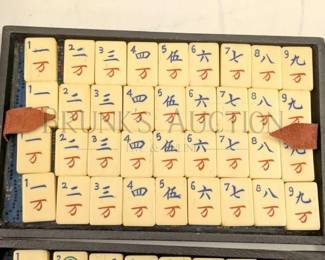 1 一 2 二 3 三 4 四 5 伍 6 六 7 七 8 八 9 九
万 万 万 万 万 万 万 万 万
1 一 2 二 3 三 4 四 5 伍 6 六 7 七 8 八 9 九
万 万 万 万 万 万 万 万 万
BRUNK'S AUCTION
1 一 2 二 3 三 4 四 5 伍 6 六 7 七 8 八 9 九
万 万 万 万 万 万 万 万 万
1 一 2 二 3 三 4 四 5 伍 6 六 7 七 8 八 9 九
万 万 万 万 万 万 万 万 万